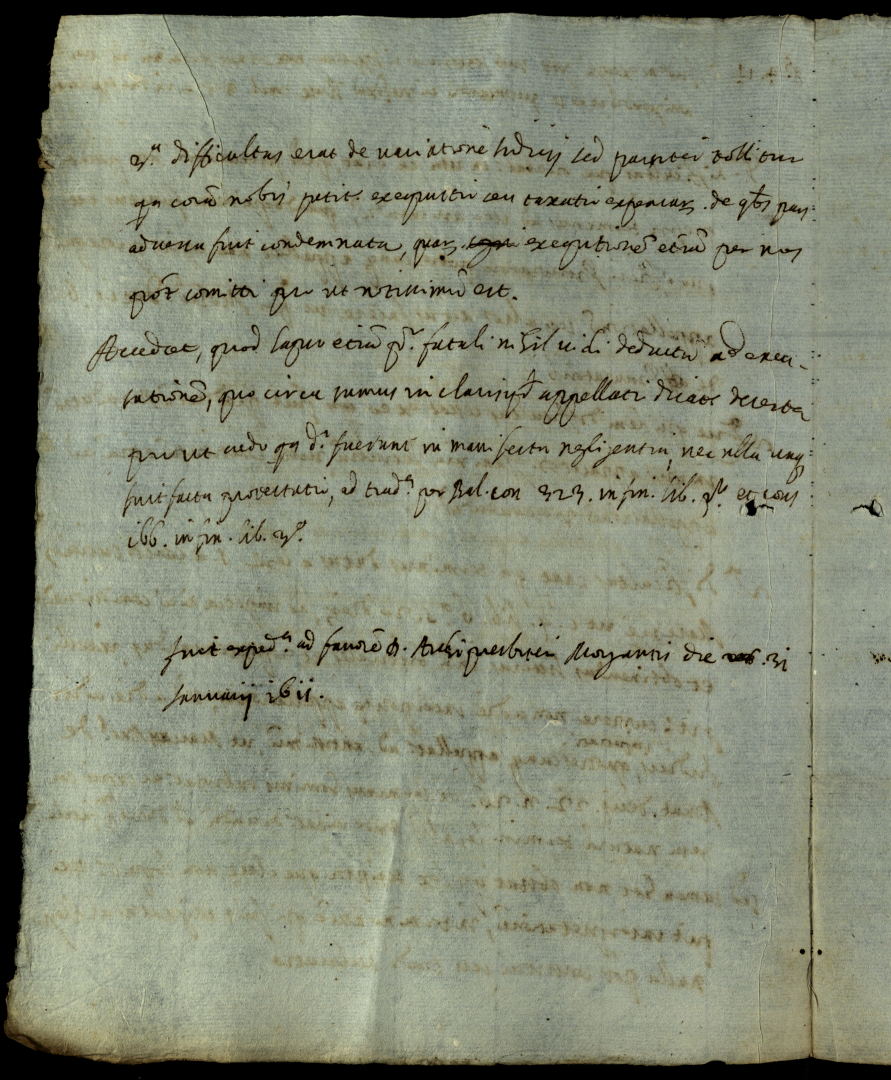 3.ª difficultas erat de variatione Iudicij sed pariter tollitur
qa corã nobis petit. exequutio ceu taxatio expensar. de qbs pars
adversa fuit condemnata, quar. exequtionẽ etiã per nos
pot comitti prout notissimũ est.
Accedat, quod lapso etiã pº. fatali nihil vidi deductũ ad exeq
cutionẽ, quo circa sumus in claris appellati dicat. deserta
prout credo qa d. fuerunt in manifesta negligentia, nec ulla unq
fuit facta protestatio, ad trad.ª per Bal. con 323. in fin. lib. et cons
166. in fin. lib. 3º.
fuit exped.ª ad favorẽ d. Archipresbiteri Morgantis die 31
Ianuarij 1611.